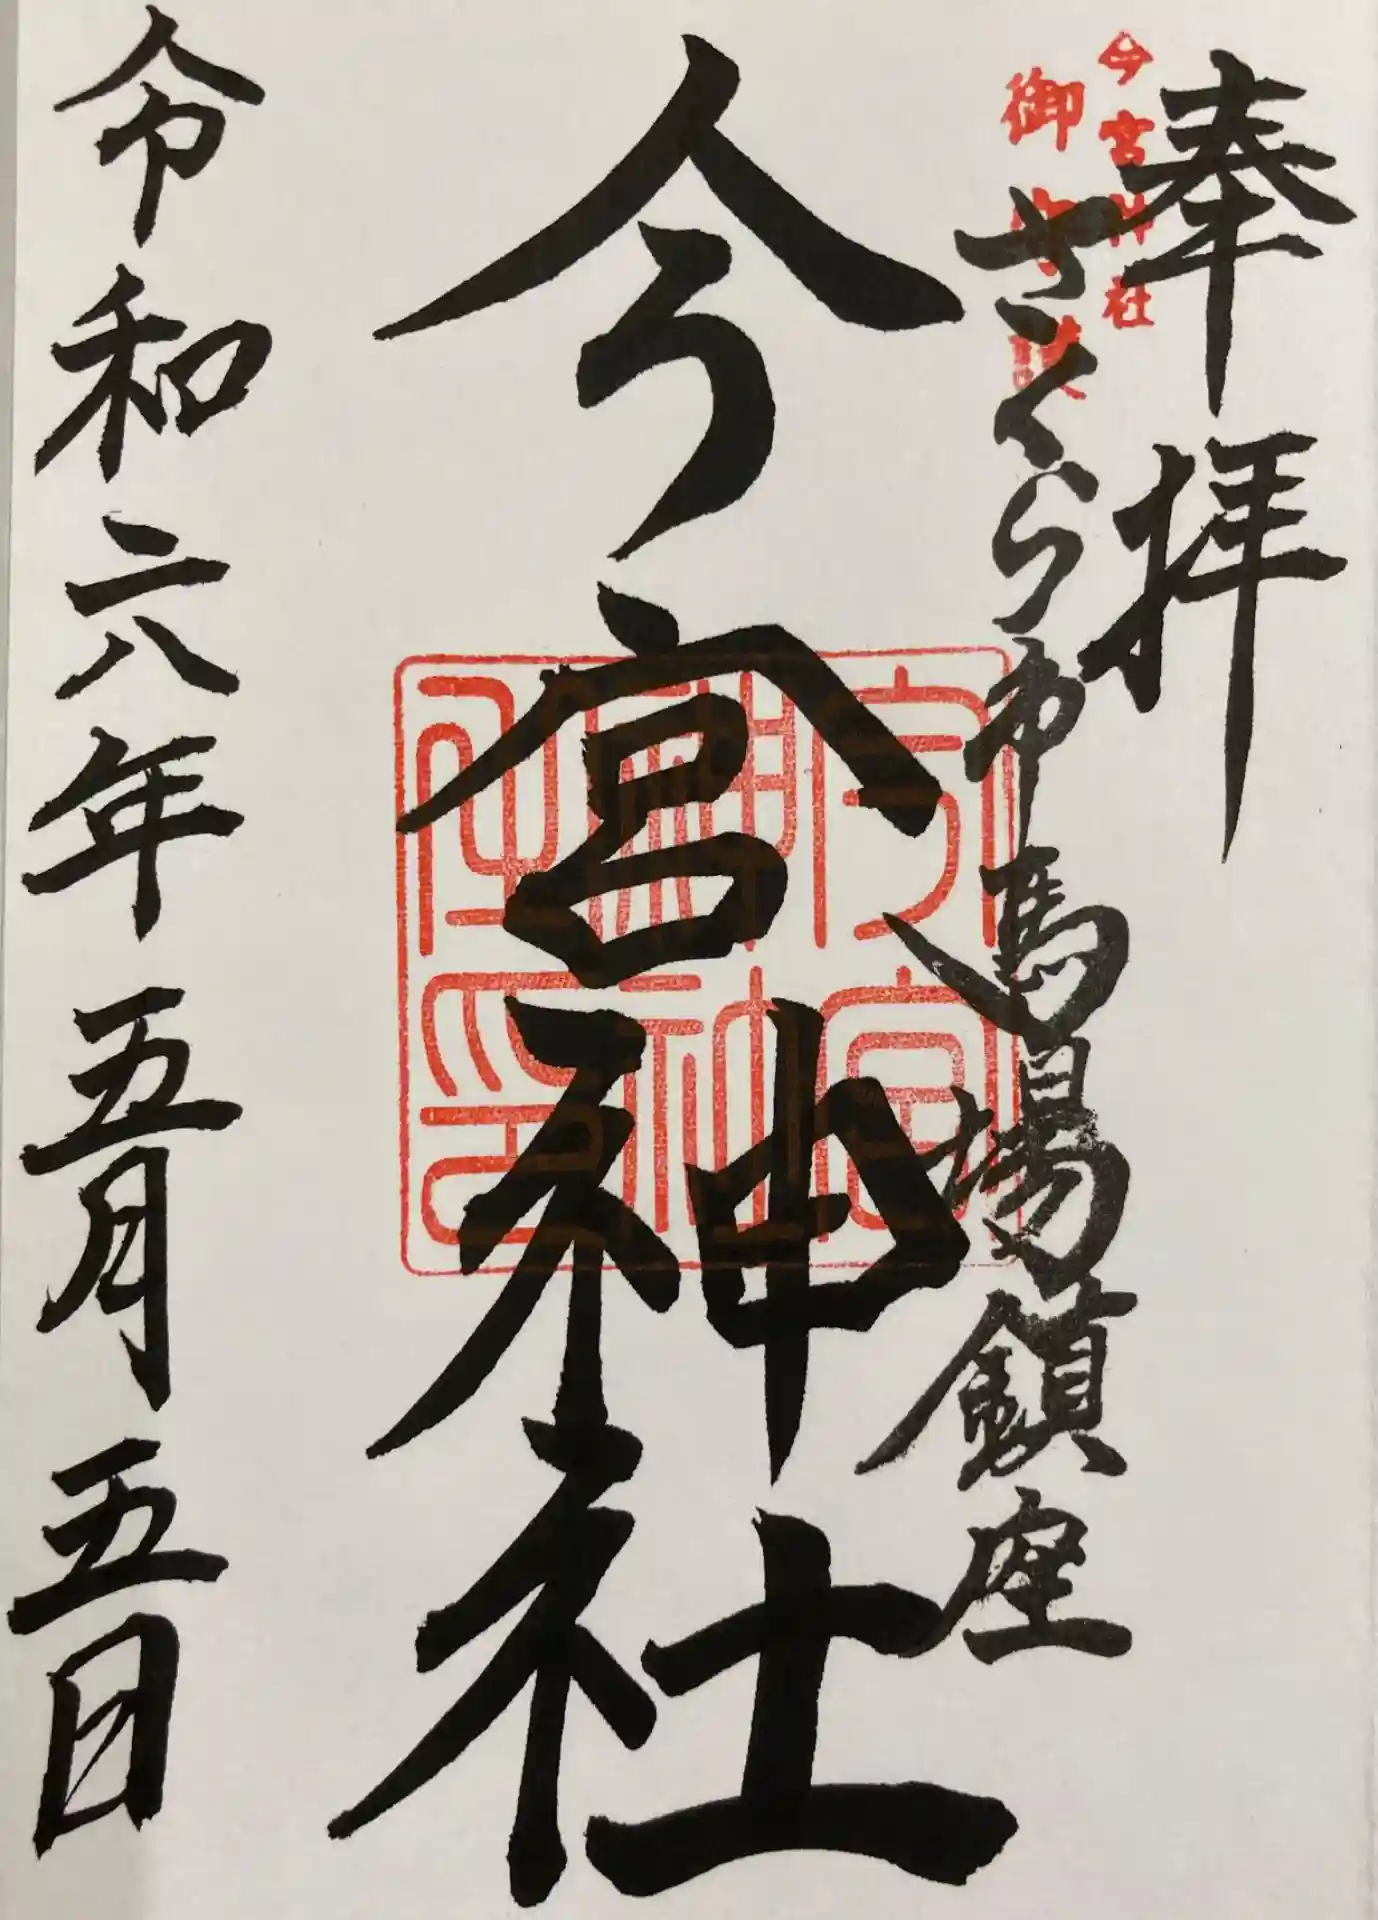 奉拝
今宮神社
御守護
さくら市馬場鎮座
今宮神社
令和六年五月五日